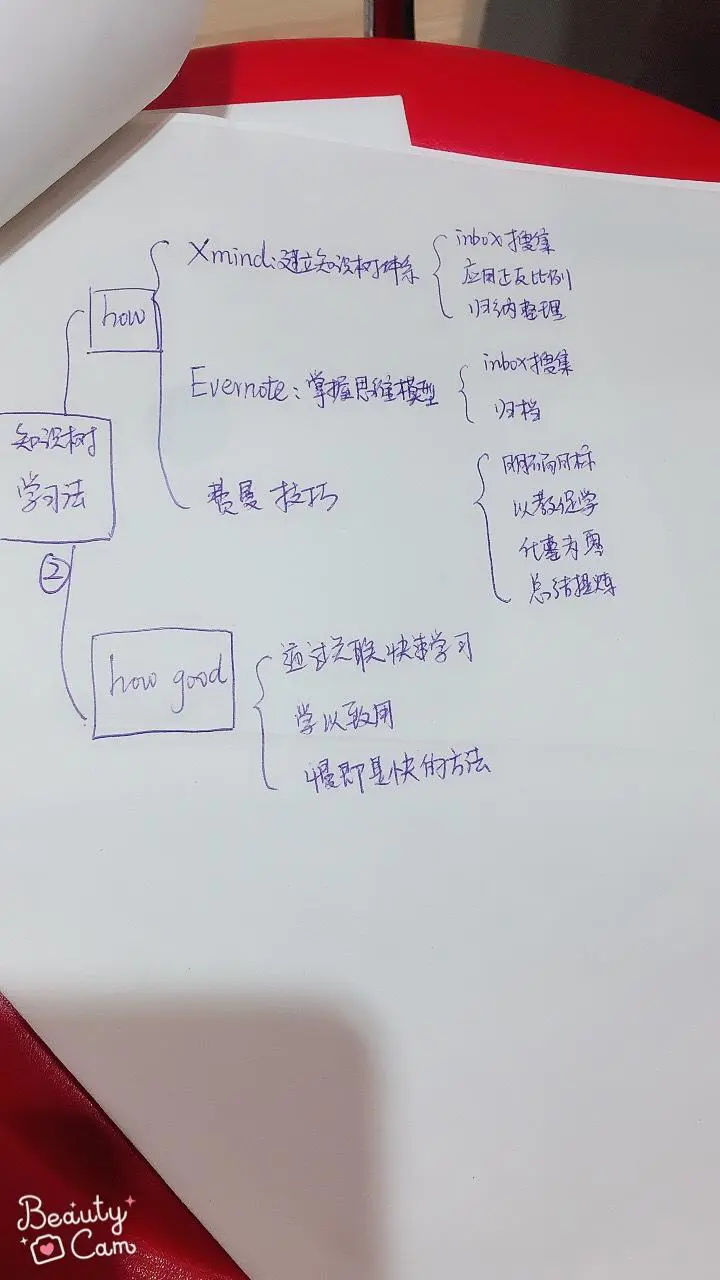 how
Xmind:建立知识树体系
inbox搜集
应用正反比例
归纳整理
Evernote:掌握思维模型
inbox搜集
归档
费曼技巧
明确目标
以教促学
化繁为
总结提炼
知识树
学习法
②
how good
通过关联快速学习
学以致用
慢即是快的方法
Beauty
Cam